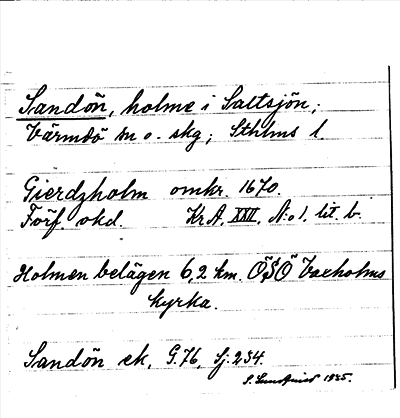 Sandön, holme i Saltsjön;
Värmdö sn o. skg; Sthlms l.
Gierdzholm omkr. 1670.
Förf. okd. Kr.A. XXII. N:o 1. lit. b.
Holmen belägen 6,2 km. ÖSÖ Vaxholms
kyrka.
Sandön ek. G.76, Sj:234.
S. 1935.